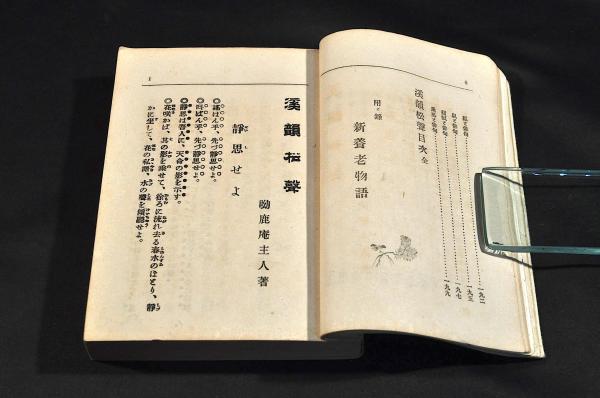 六
一九二
一九三
一九七
一九九
溪韻松聲目次 全
附錄
新養老物語
溪韻松聲
呦鹿庵主人著
靜思せよ
◎謠はん乎、先づ靜思せよ。
◎叫ばん乎、先づ靜思せよ。
◎靜思は吾人に、天命の影を示す。
◎花咲かば、其の影を乘せて、徐ろに流れ去る春水のほとり、靜
かに坐して、花の私語、水の囁を傾聽せよ。
1